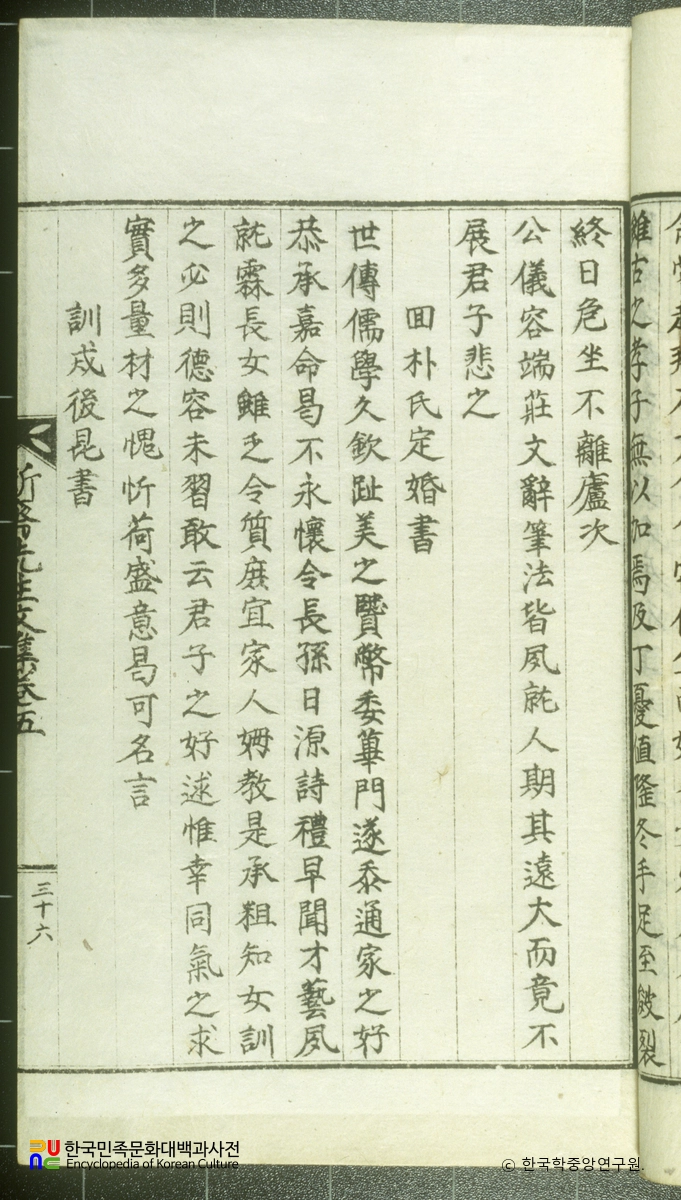 雖古之孝子無以加焉及丁憂值隆冬手足至皸裂
終日危坐不離廬次
公儀容端莊文辭筆法皆夙就人期其遠大而竟不
展君子悲之
回朴氏定婚書
世傳儒學久欽趾美之賢幣委蓽門遂忝通家之好
恭承嘉命曷不永懷令長孫日源詩禮早聞才藝夙
就霖長女雖乏令質庶宜家人姆教是承粗知女訓
之必則德容未習敢云君子之好逑惟幸同氣之求
實多量材之愧忻荷盛意曷可名言
訓戒後昆書
忻齋先生文集卷五
三十六
한국민족문화대백과사전
Encyclopedia of Korean Culture
© 한국학중앙연구원.